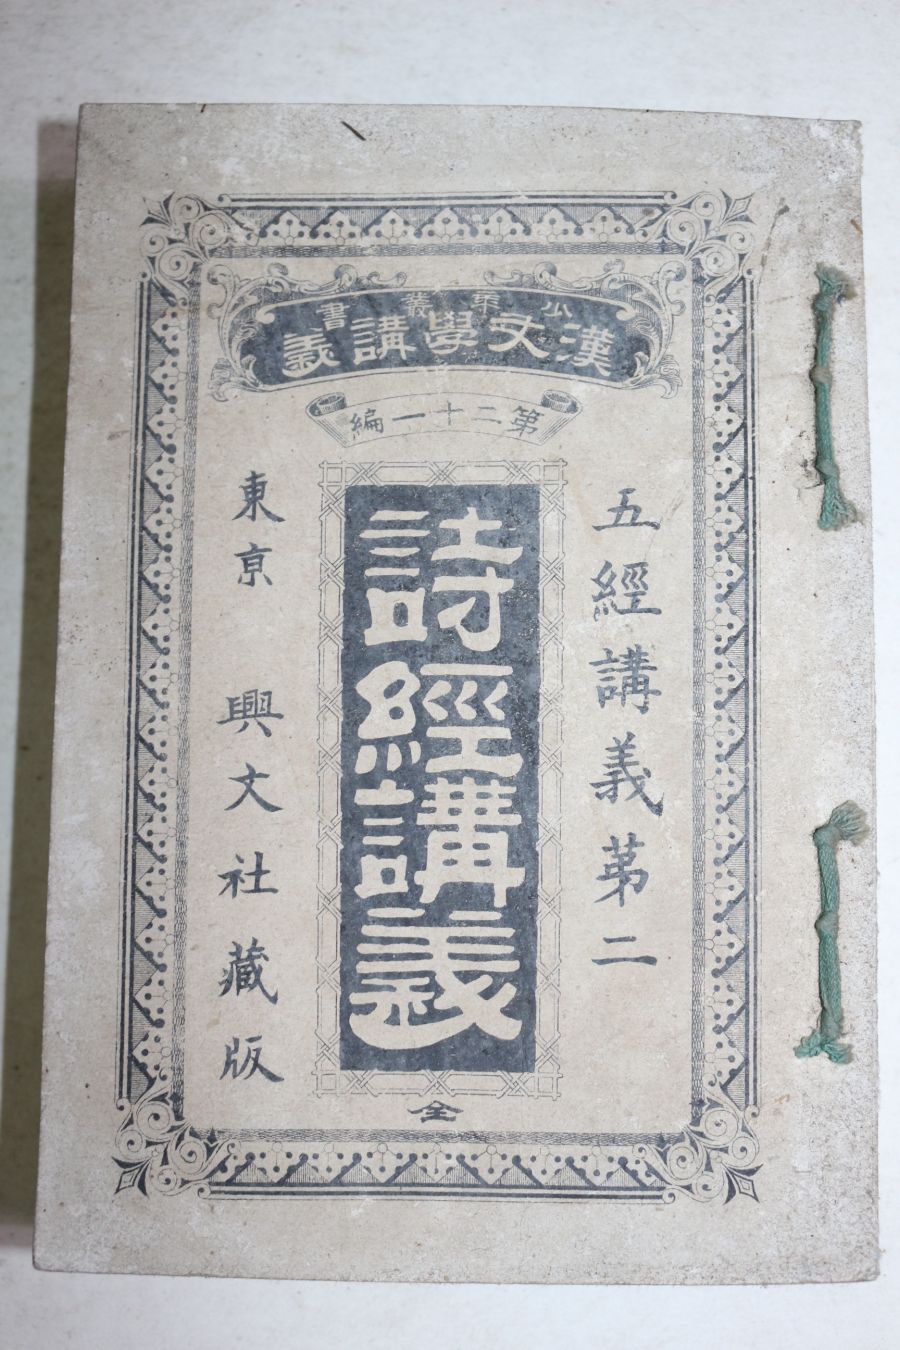 少年叢書
漢文學講義
第二十一編
五經講義第二
詩經講義
全
東京 興文社藏版